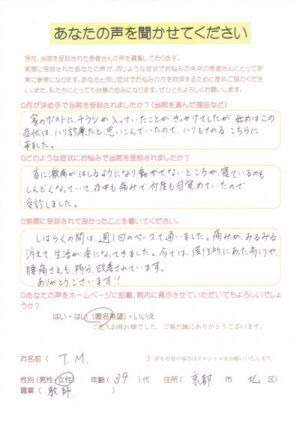 あなたの声を聞かせてください
現在、当院を受診された患者さんの声を募集しております。
実際に受診されたあなたの声が、同じような症状でお悩みの未来の患者さんにとって非
常に参考になります。あなたと同じ症状でお悩みの方を救済するために是非ご協力くださ
い。また、もたにとっても日々の励みになります。ぜひともよろしくお願いします。
Q何が決め手で当院を受診されましたか?(当院を選んだ理由など)
家のポストにチラシが入っていたことが、きっかけでしたが、始めはこの
症状は、ハリ診療だと思いこんでいたので、ハリもされる こちらに
来ました。
Qどのような症状にお悩みで当院を受診されましたか?
首に激痛がはしるようになり動かせないところか、寝ているのも
しんどくなっていて、夜中も痛みで何度も目覚めていたので
受診しました。
Q実際に受診されて良かったことを書いてください。
しばらくの間は、週1回のペースで通いました。痛みが、みるみる
消えて、生活が楽になってきました。今では、慢性的にあった肩こりや
腰痛さえも、随分、改善されています。
ありがとうございます!
Qあなたの声をホームページに記載、院内に掲示させていただいてもよろしいでしょうか?
はい・はい(匿名希望)・いいえ
ご記入お疲れ様でした。ご協力誠にありがとうございます。
お名前( T.M. )
性別(男性・女性) 年齢(39)代 住所(京都 市 北 区)
職業(教師)